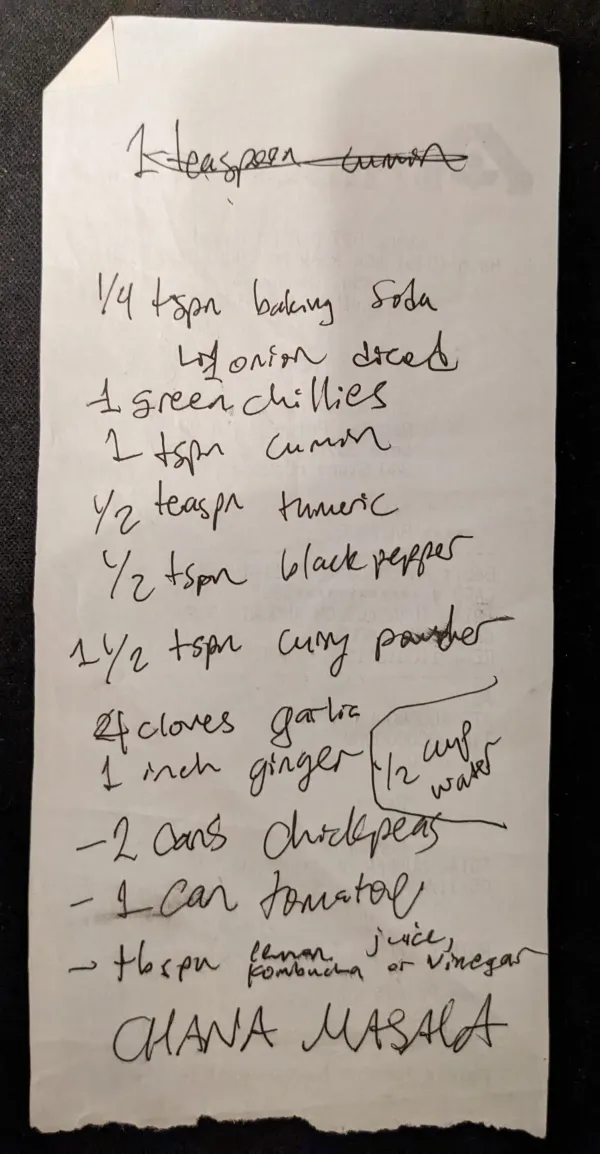 1 teaspoon cumin
1/4 tspn baking soda
onion diced
1 green chillies
1 tspn cumin
1/2 teaspn tumeric
1/2 tspn black pepper
1 1/2 tspn curry powder
4 cloves garlic
1 inch ginger
1/2 cup
water
- 2 cans chickpeas
- 1 can tomatoe
- tbspn lemon juice,
kombucha or vinegar
CHANA MASALA